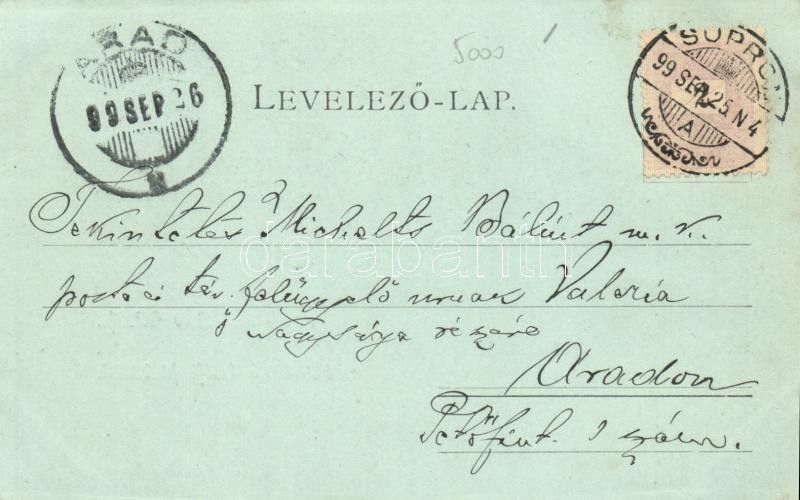 5000
ARAD
99 SEP 26
LEVELEZŐ-LAP.
SOPRON
99 SEP. 25. N 4
A
Tekintetes Michelts Bálint m. k.
posta és táv. felügyelő urnak Valéria
ő Nagysága részére
Aradon
Petőfi ut. 1 szám.
darabanth